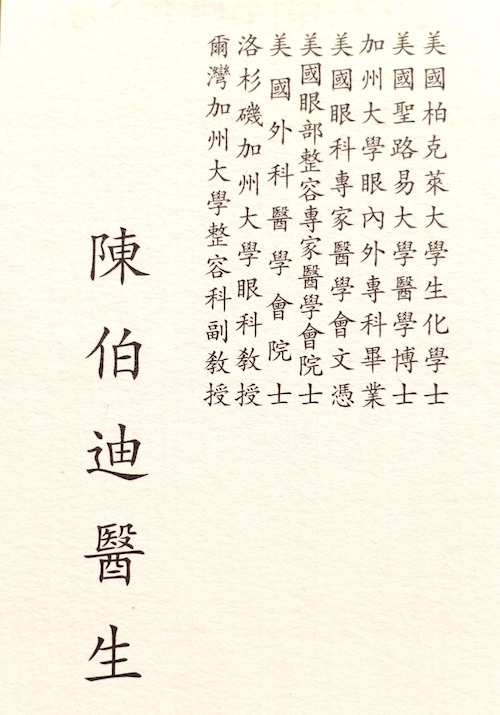 美國柏克萊大學生化學士
美國聖路易大學醫學博士
加州大學眼內外專科畢業
美國眼科專家醫學會文憑
美國眼部整容專家醫學會院士
美國外科醫學會院士
洛杉磯加州大學眼科教授
爾灣加州大學整容科副教授
陳伯迪醫生